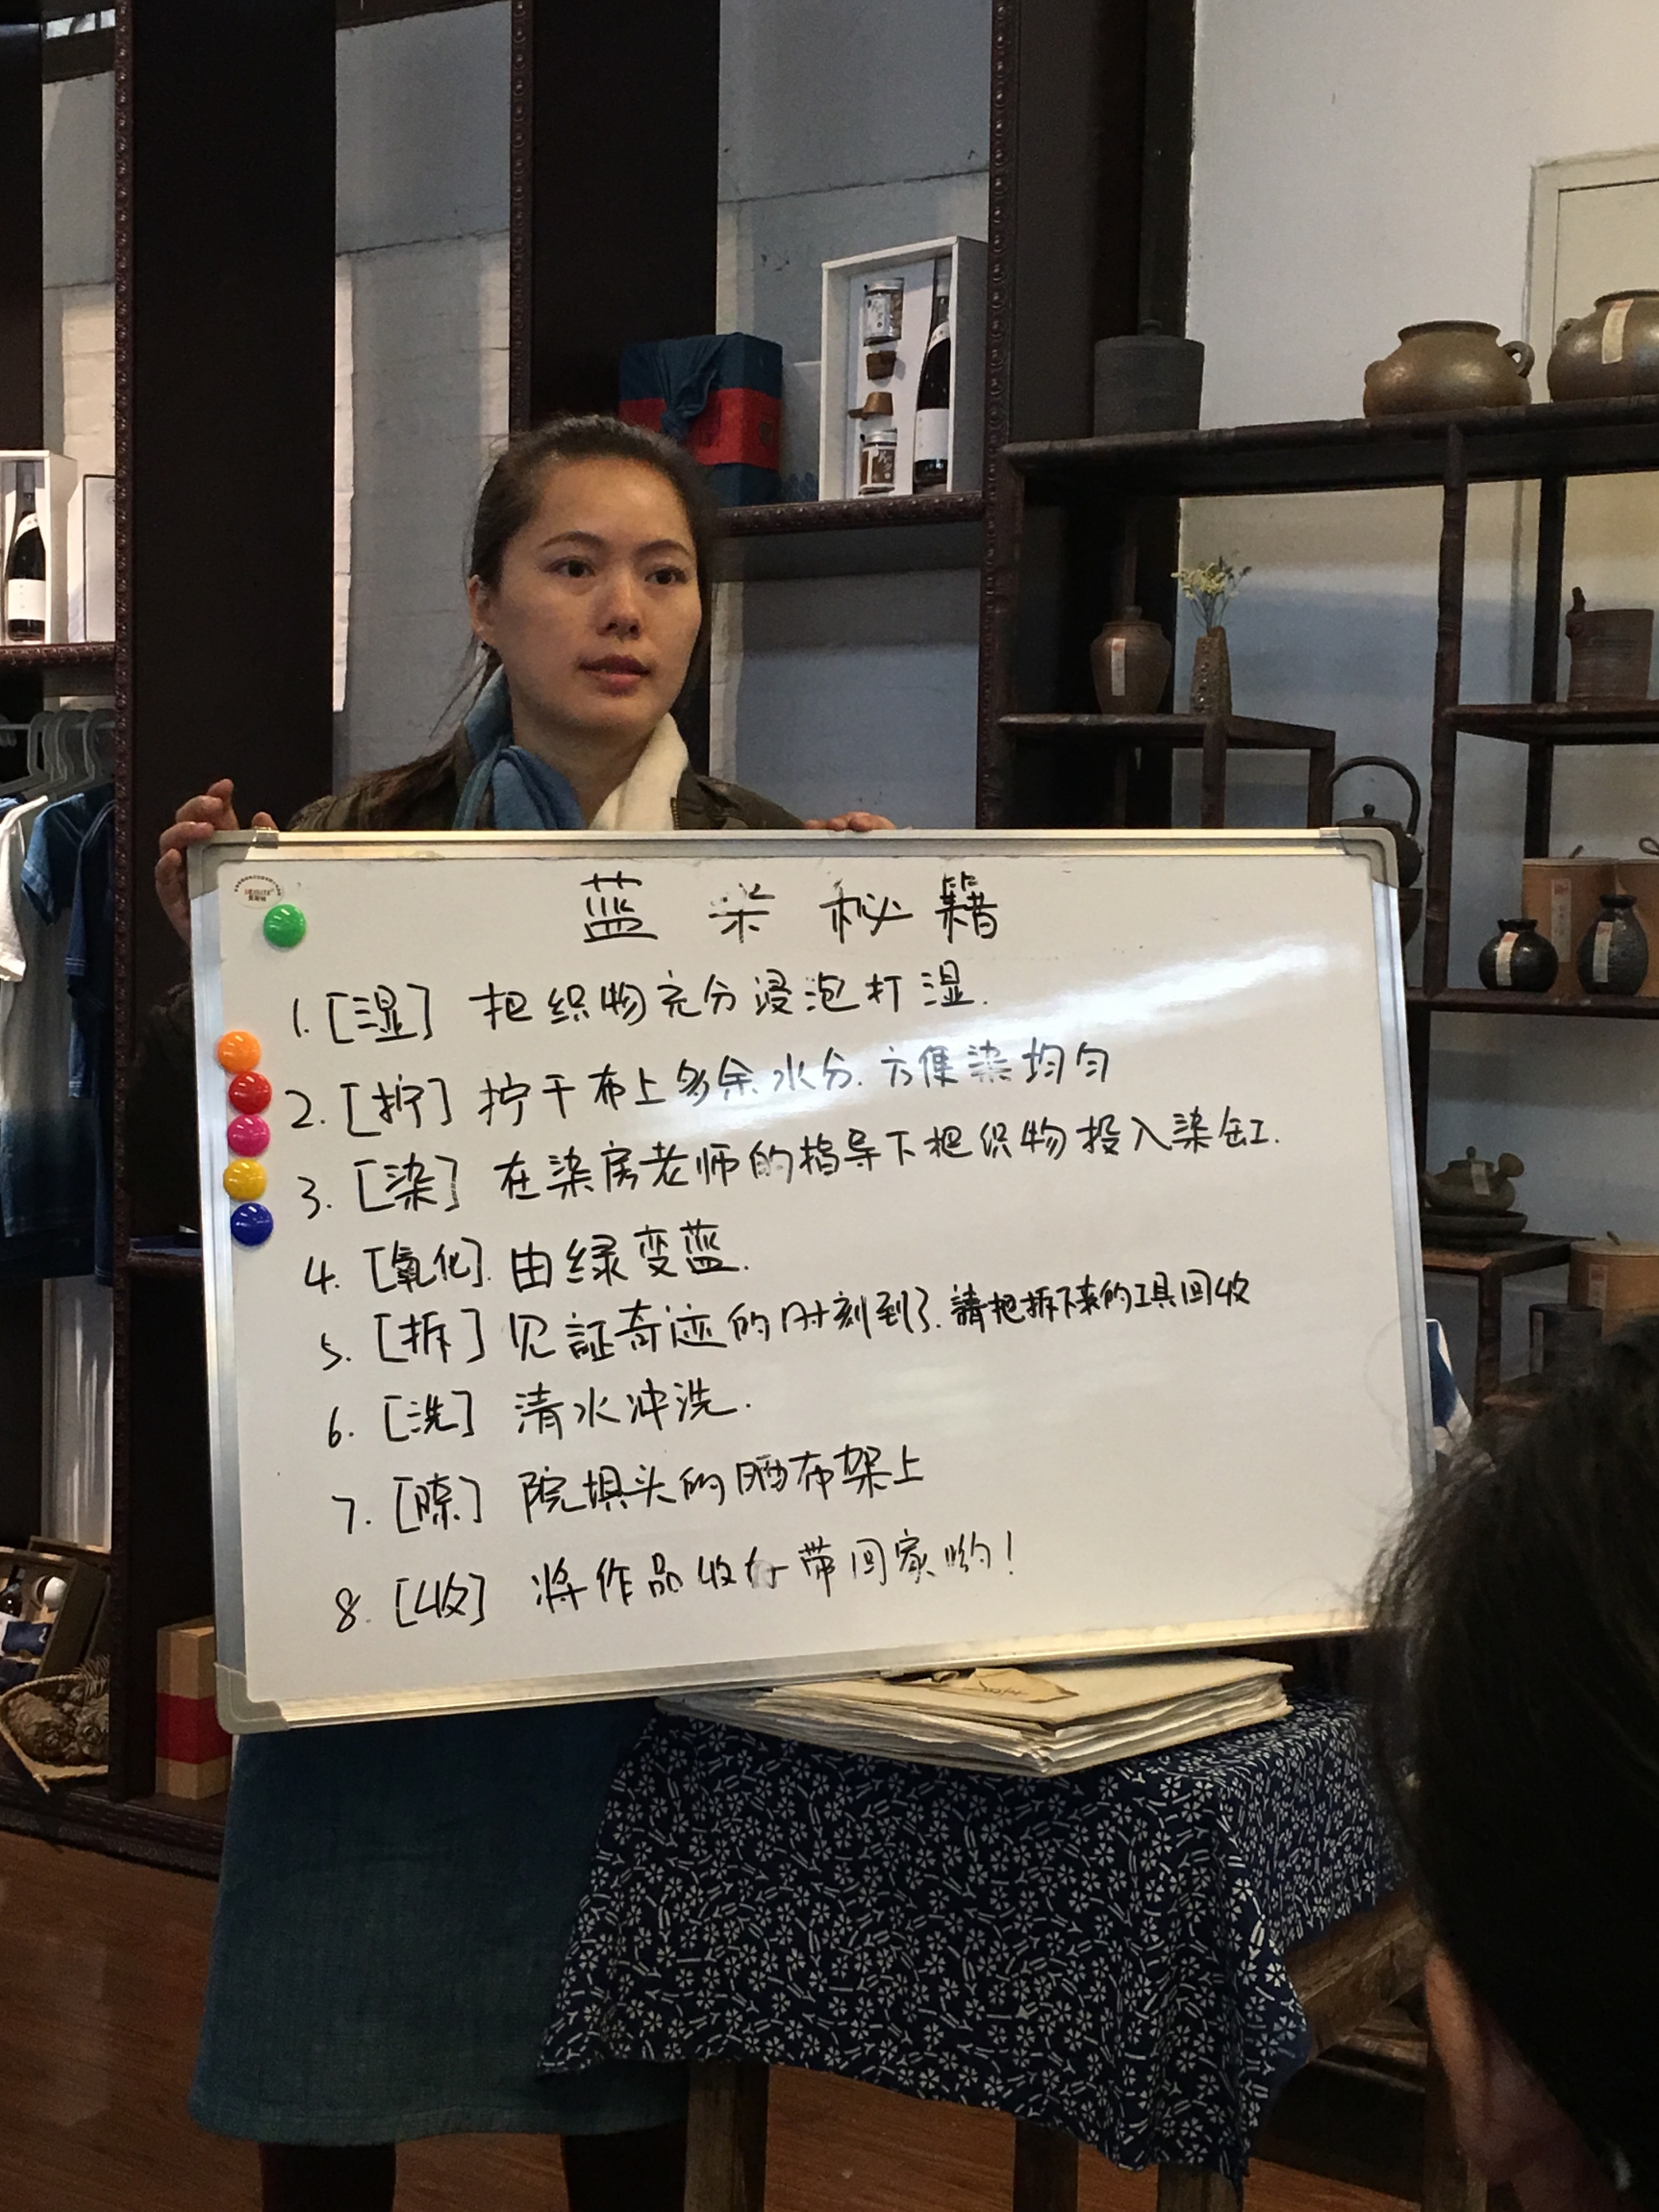 蓝染秘籍
1. [湿] 把织物充分浸泡打湿.
2. [拧] 拧干布上多余水分. 方集染均匀
3. [染] 在染房老师的指导下把织物投入染缸.
4. [氧化]. 由绿变蓝.
5. [拆] 见証奇迹的时刻到了. 請把拆下来的工具回收
6. [洗] 清水冲洗.
7. [晾] 院垻头的晒布架上
8. [收] 将作品收好带回家哟!